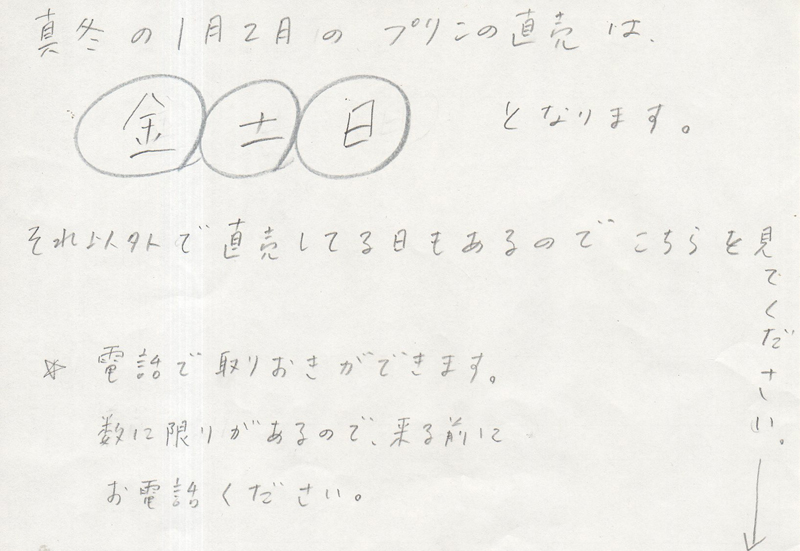 真冬の1月2月のプリンの直売は、
金 土 日 となります。
それ以外で直売してる日もあるのでこちらを見てください。
☆ 電話で取りおきができます。
数に限りがあるので、来る前に
お電話ください。